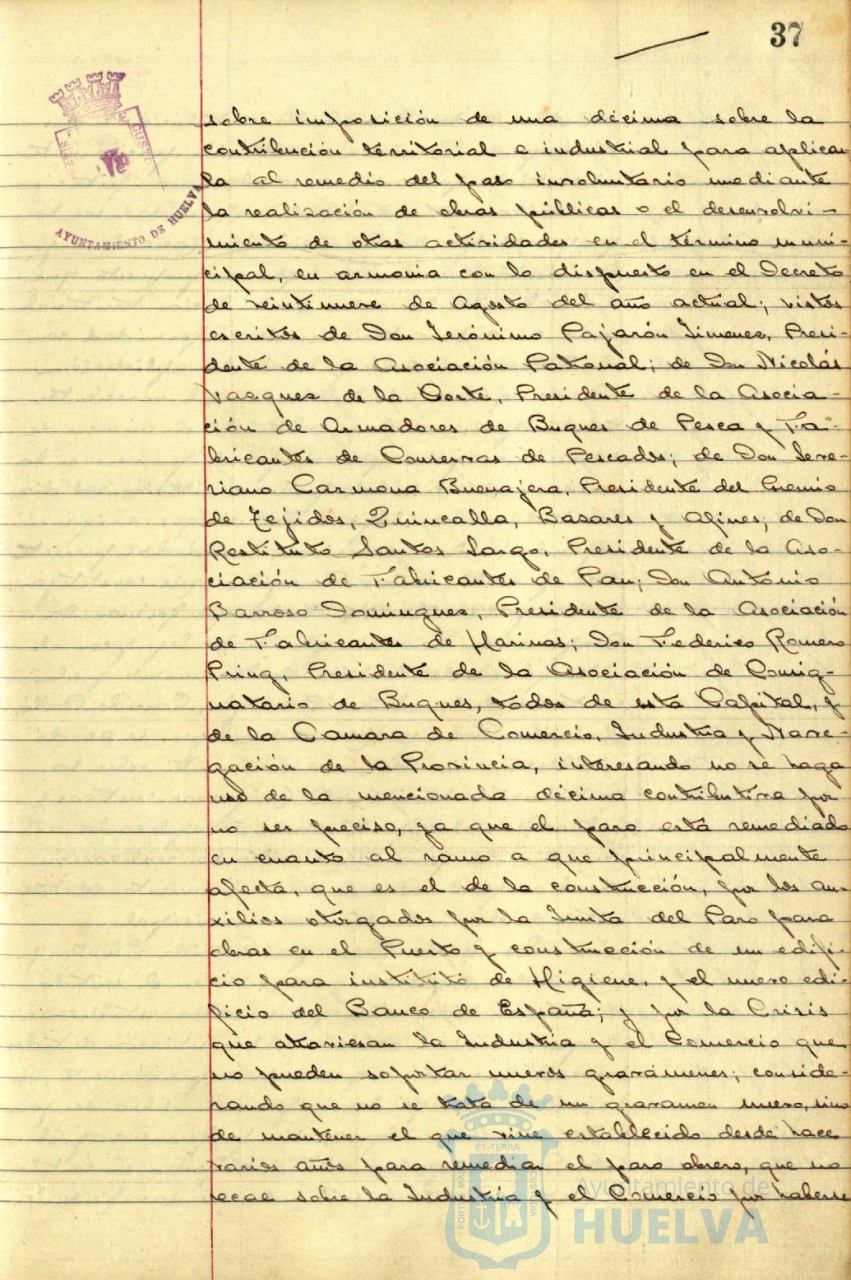 37
AYUNTAMIENTO DE HUELVA
sobre imposición de una décima sobre la
contribución territorial e industrial para aplicar
la al remedio del paso involuntario mediante
la realización de obras públicas o el desenvolvi-
miento de otas actividades en el término muni-
cipal, en armonia con lo dispuesto en el Decreto
de veintinueve de Agosto del año actual; vistos
escritos de Don Jerónimo Pajarón Jimenez, Presi-
dente de la Asociación Patronal; de Don Nicolás
Vazquez de la Corte, Presidente de la Asocia-
ción de Armadores de Buques de Pesca y Fa-
bricantes de Conservas de Pescados; de Don Seve-
riano Carmona Buenajera, Presidente del Gremio
de Tejidos, Quincalla, Bazares y Afines, de Don
Restituto Santos Largo, Presidente de la Aso-
ciación de Fabricantes de Pan; Don Antonio
Barroso Dominguez, Presidente de la Asociación
de Fabricantes de Harinas; Don Federico Romero
Pring, Presidente de la Asociación de Consig-
natario de Buques, todos de esta Capital, y
de la Camara de Comercio, Industria y Nave-
gación de la Provincia, interesando no se haga
uso de la mencionada décima contributiva por
no ser preciso, ya que el paro está remediado
en cuanto al ramo a que principalmente
afecta, que es el de la construcción, por los au-
xilios otorgados por la Junta del Paro para
obras en el Puerto y construcción de un edifi-
cio para instituto de Higiene, y el nuevo edi-
ficio del Banco de España; y por la Crisis
que atraviesan la Industria y el Comercio que
no pueden soportar nuevos gravámenes; conside-
rando que no se trata de un gravamen nuevo, sino
de mantener el que vine establecido desde hace
varios años para remediar el paro obrero, que no
recae sobre la Industria y el Comercio por haberse
ET TERRÆ
Ayuntamiento de
HUELVA